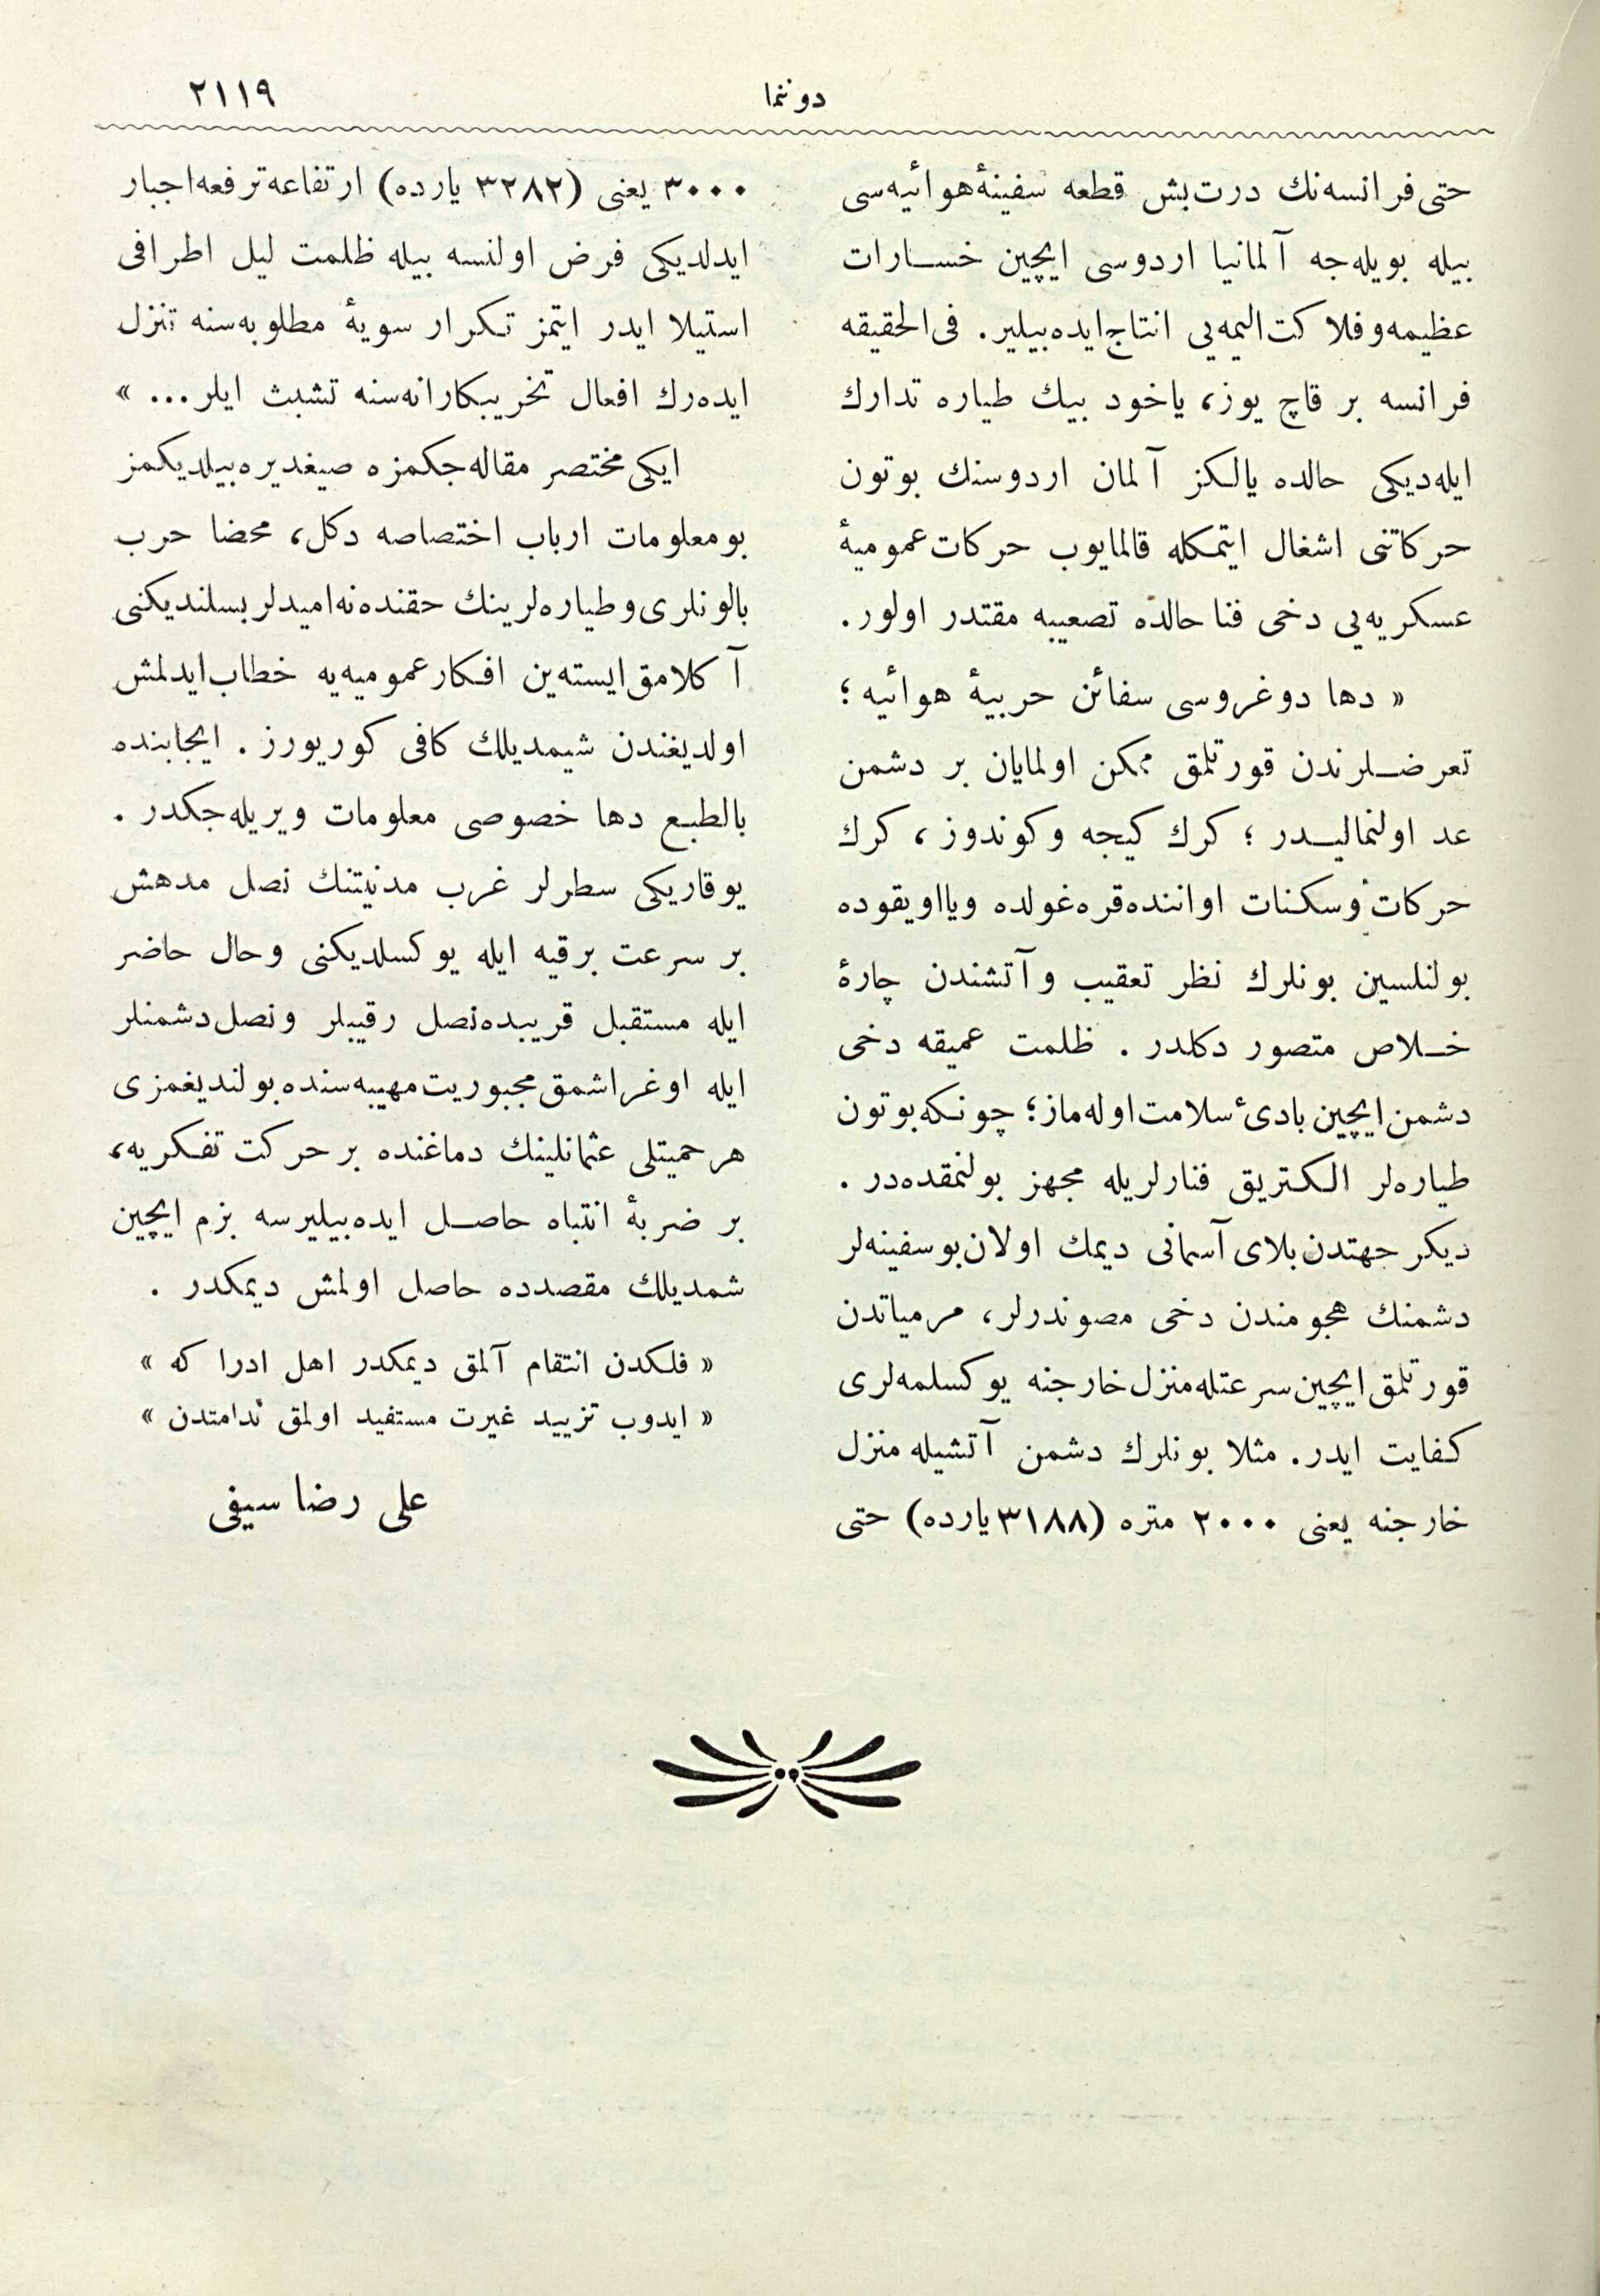 دوننما
٢١١٩
حتی فرانسه‌نك درت‌بش قطعه سفینۀ هوائیه‌سی
بیله بویله‌جه آلمانیا اردوسی ایچین خسارات
عظیمه‌و فلاكت‌الیمه‌یی انتاج‌ایده‌بیلیر. فی‌الحقیقه
فرانسه بر قاچ یوز، یاخود بیك طیاره تدارك
ایله‌دیكی حالده یالكز آلمان اردوسنك بوتون
حركاتنی اشغال ایتمكله قالمایوب حركات عمومیۀ
عسكریه‌یی دخی فنا حالده تصعیبه مقتدر اولور.
« دها دوغروسی سفائن حربیۀ هوائیه ؛
تعرضلرندن قورتلمق ممكن اولمایان بر دشمن
عد اولنمالیدر ؛ كرك كیجه وكوندوز ، كرك
حركات وسكنات اواننده‌قره‌غولده ویااویقوده
بولنلسین بونلرك نظر تعقیب وآتشندن چارۀ
خلاص متصور دكلدر . ظلمت عمیقه دخی
دشمن ایچین بادیٔ سلامت اوله‌ماز؛ چونكه بوتون
طیاره‌لر الكتریق فنارلریله مجهز بولنمقده‌در .
دیكر جهتدن بلای آسمانی دیمك اولان بوسفینه‌لر
دشمنك هجومندن دخی مصوندرلر، مرمیاتدن
قورتلمق ایچین سرعتله منزل خارجنه یوكسلمه‌لری
كفایت ایدر. مثلا بونلرك دشمن آتشیله منزل
خارجنه یعنی ٢٠٠٠ متره (٣١٨٨ یارده) حتی
٣٠٠٠ یعنی (٣٢٨٢ یارده) ارتفاعه ترفعه اجبار
ایدلدیكی فرض اولنسه بیله ظلمت لیل اطرافی
استیلا ایدر ایتمز تكرار سویۀ مطلوبه‌سنه تنزل
ایده‌رك افعال تخریبكارانه‌سنه تشبث ایلر... »
ایكی مختصر مقاله‌جكمزه صیغدیره‌بیلدیكمز
بومعلومات ارباب اختصاصه دكل، محضا حرب
بالونلری و طیاره‌لرینك حقنده نه‌امیدلر بسلندیكنی
آكلامق ایسته‌ین افكار عمومیه‌یه خطاب ایدلمش
اولدیغندن شیمدیلك كافی كوریورز . ایجابنده
بالطبع دها خصوصی معلومات ویریله‌جكدر .
یوقاریكی سطرلر غرب مدنیتنك نصل مدهش
بر سرعت برقیه ایله یوكسلدیكنی وحال حاضر
ایله مستقبل قریبده نصل رقیبلر ونصل دشمنلر
ایله اوغراشمق مجبوریت مهیبه‌سنده بولندیغمزی
هر حمیتلی عثمانلینك دماغنده بر حركت تفكریه،
بر ضربۀ انتباه حاصل ایده‌بیلیرسه بزم ایچین
شمدیلك مقصدده حاصل اولمش دیمكدر .
« فلكدن انتقام آلمق دیمكدر اهل ادرا كه »
« ایدوب تزیید غیرت مستفید اولمق ندامتدن »
علی رضا سیفی